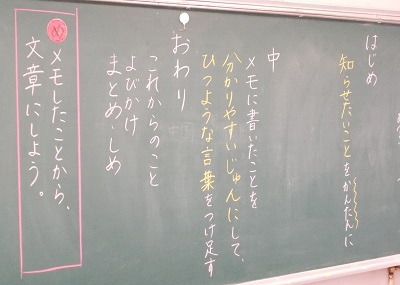 はじめ
知らせたいことをかんたんに
中
メモに書いたことを
分かりやすいじゅんにして、
ひつような言葉をつけ足す
おわり
これからのこと
よびかけ
まとめ・しめ
め
メモしたことから、
文章にしよう。